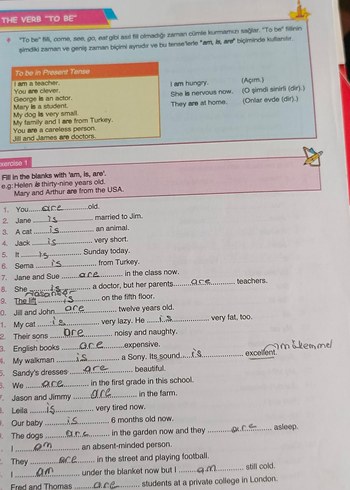 THE VERB "TO BE"
"To be" fiili, come, see, go, eat gibi asıl fiil olmadığı zaman cümle kurmamızı sağlar. "To be" fiilinin
şimdiki zaman ve geniş zaman biçimi aynıdır ve bu tense'lerde "am, is, are" biçiminde kullanılır.
To be in Present Tense
I am a teacher.
You are clever.
George is an actor.
Mary is a student.
My dog is very small.
My family and I are from Turkey.
You are a careless person.
Jill and James are doctors.
I am hungry. (Açım.)
She is nervous now. (O şimdi sinirli (dir).)
They are at home. (Onlar evde (dir).)
xercise 1
Fill in the blanks with 'am, is, are'.
e.g: Helen is thirty-nine years old.
Mary and Arthur are from the USA.
1. You are old.
2. Jane is married to Jim.
3. A cat is an animal.
4. Jack is very short.
5. It is Sunday today.
6. Sema is from Turkey.
7. Jane and Sue are in the class now.
8. She is a doctor, but her parents are teachers.
9. The lift is on the fifth floor.
0. Jill and John are twelve years old.
1. My cat is very lazy. He is very fat, too.
2. Their sons are noisy and naughty.
3. English books are expensive.
4. My walkman is a Sony. Its sound is excellent.
5. Sandy's dresses are beautiful.
6. We are in the first grade in this school.
7. Jason and Jimmy are in the farm.
8. Leila is very tired now.
9. Our baby is 6 months old now.
0. The dogs are in the garden now and they are asleep.
1. I am an absent-minded person.
2. They are in the street and playing football.
I am under the blanket now but I am still cold.
Fred and Thomas are students at a private college in London.